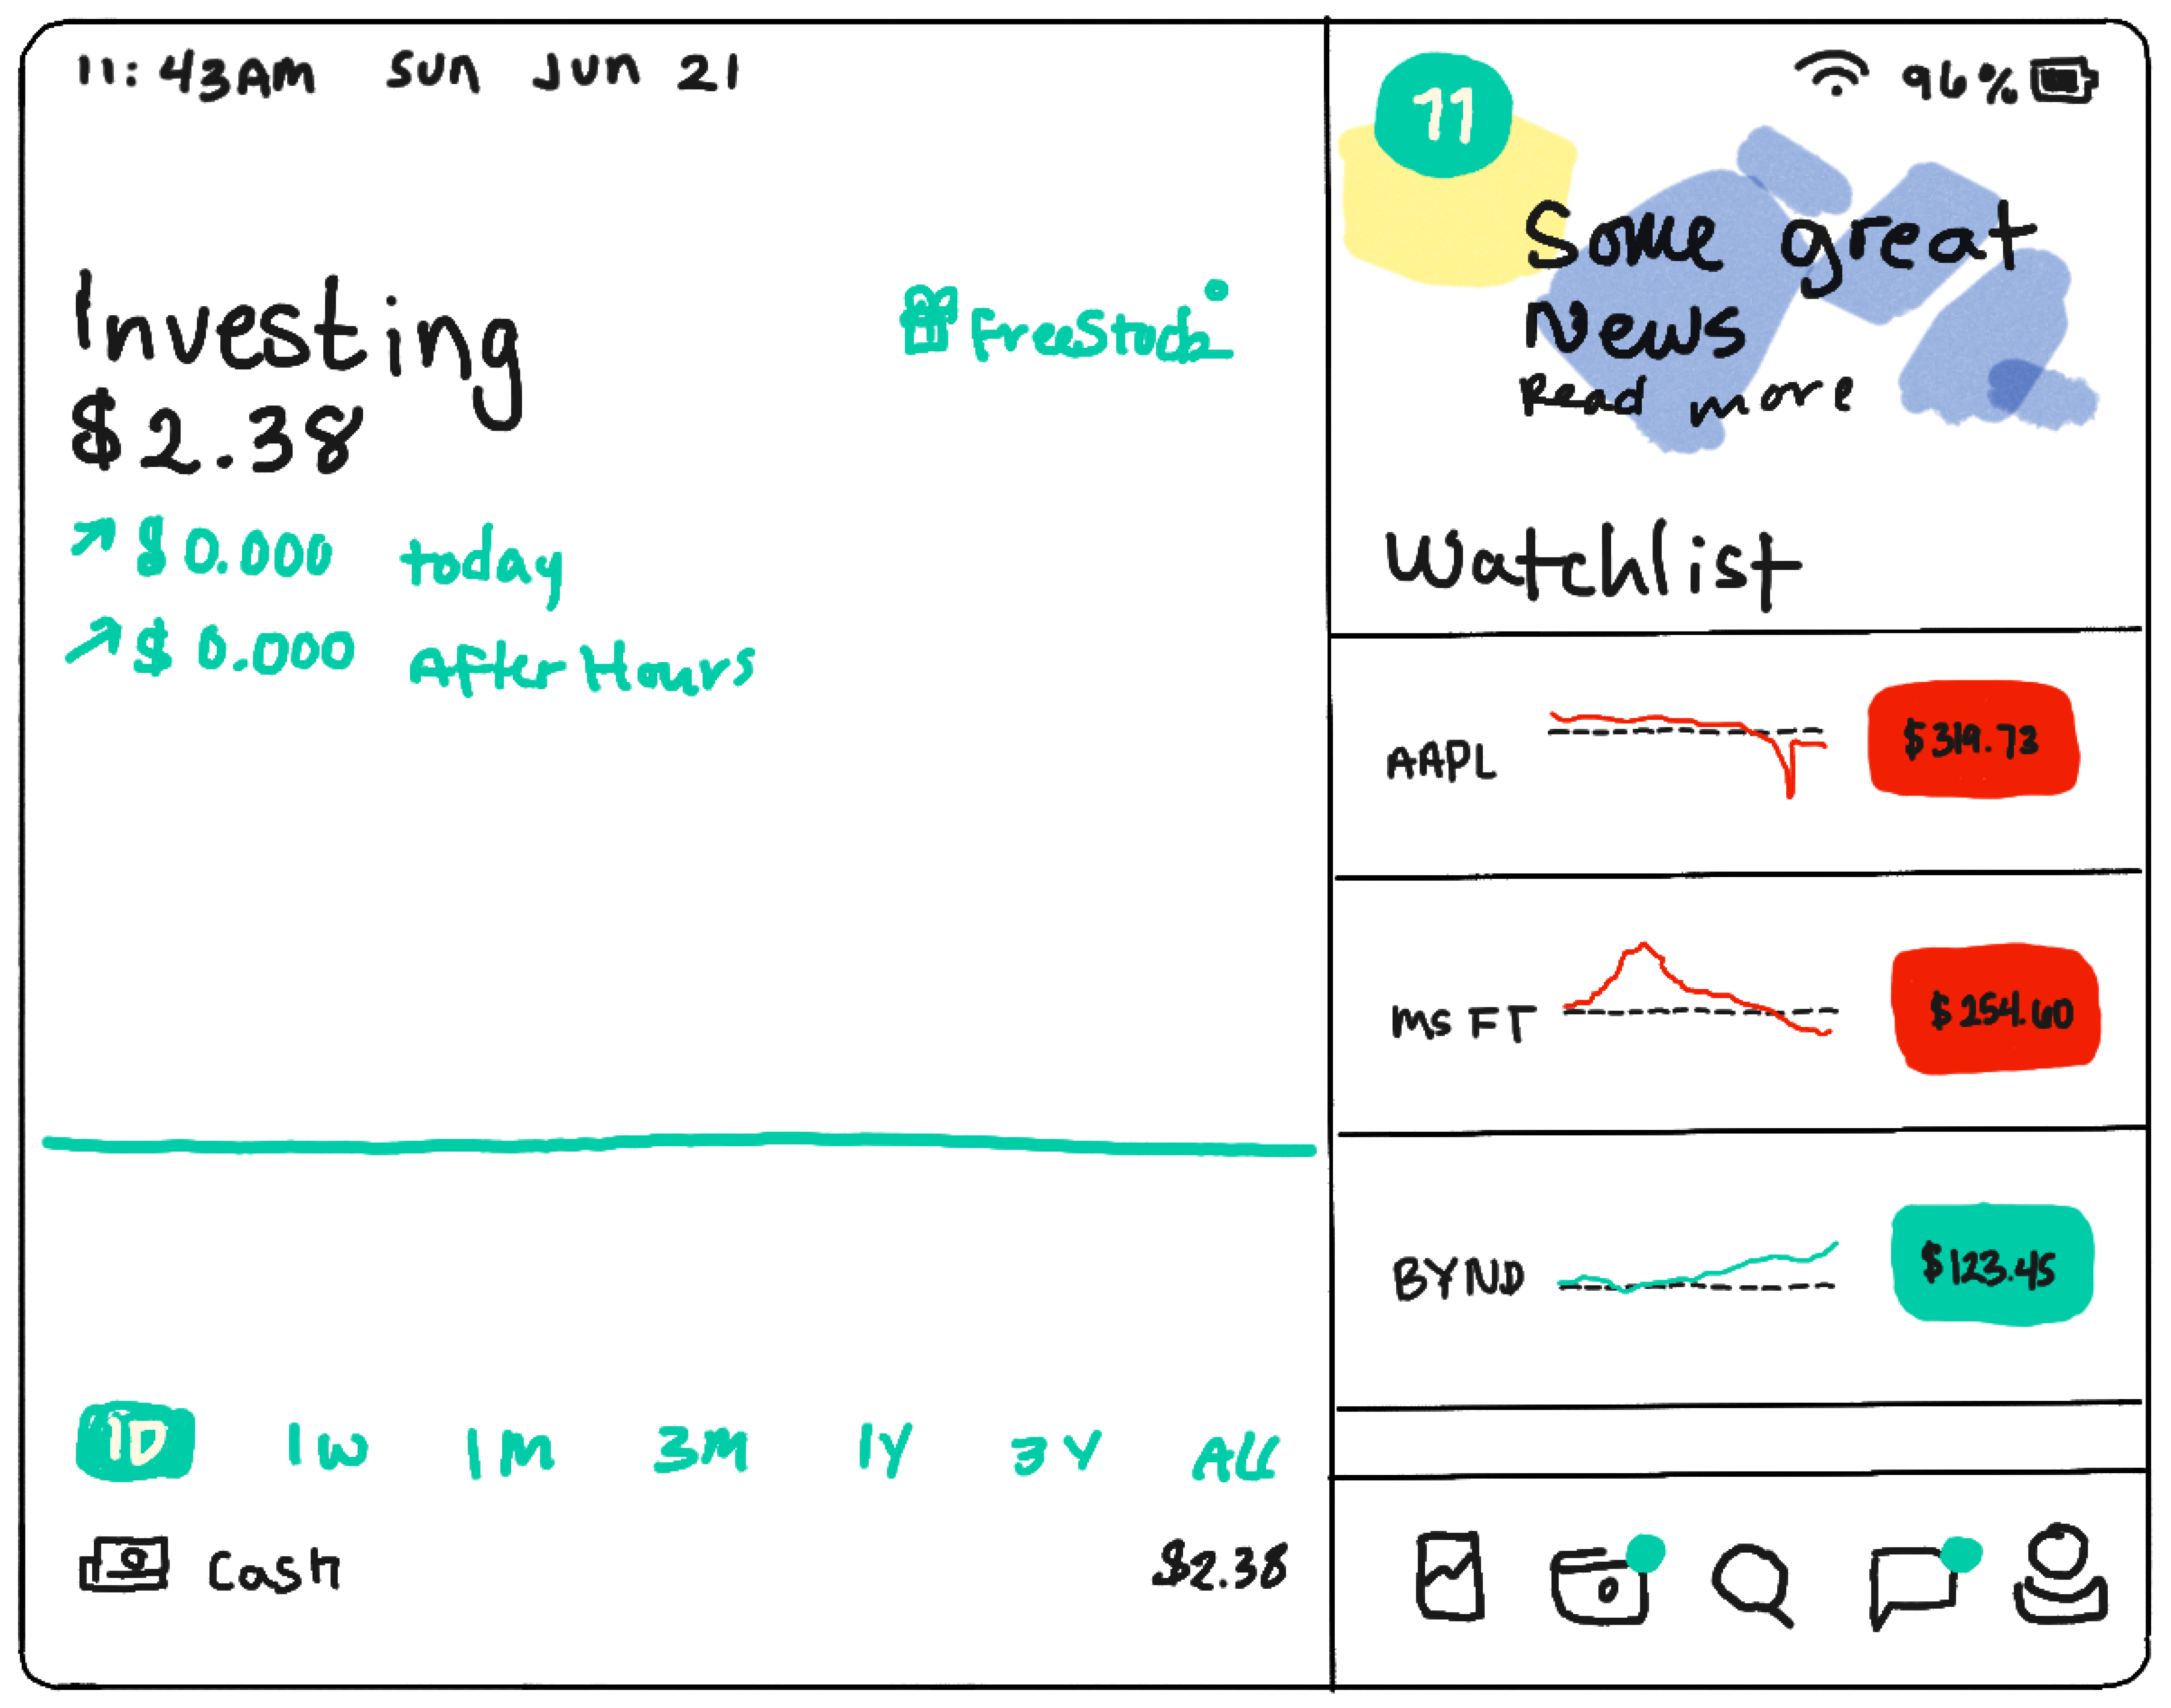 11:43AM Sun Jun 21
96%
Investing
$2.38
FreeStock
$0.000 today
$0.000 AfterHours
1D 1W 1M 3M 1Y 3Y All
Cash $2.38
11
Some great
News
Read more
Watchlist
AAPL $319.73
MSFT $254.60
BYND $123.45